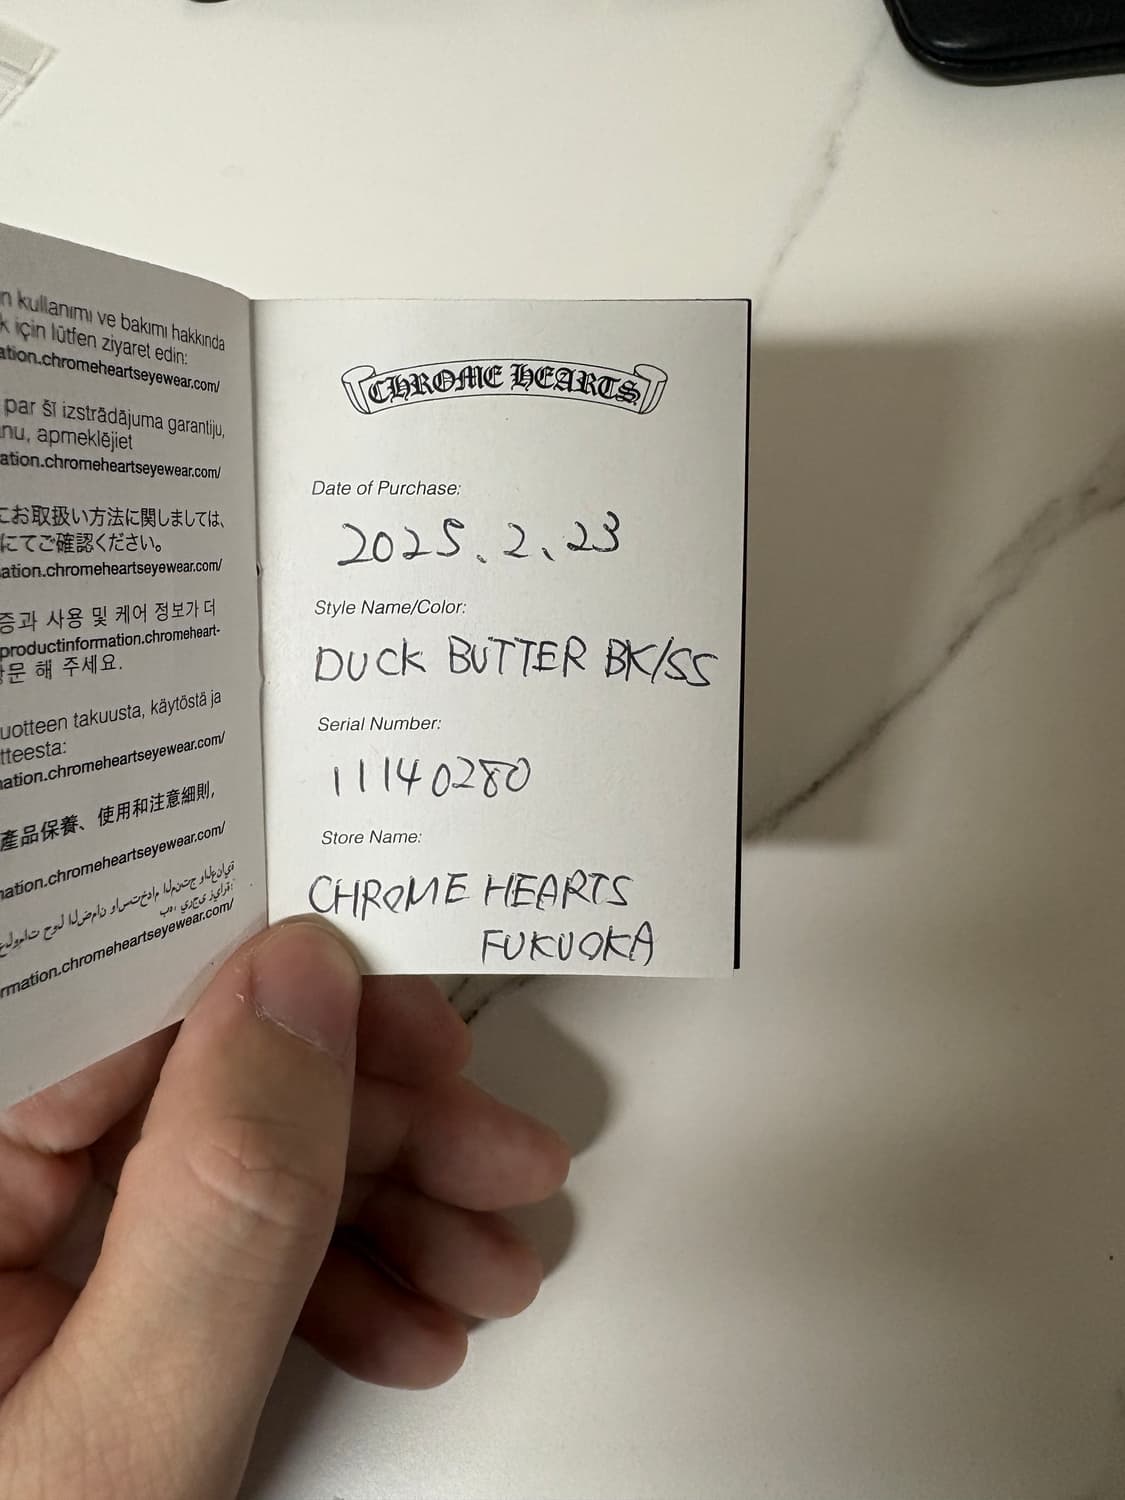 n kullanımı ve bakımı hakkında
k için lütfen ziyaret edin:
ation.chromeheartseyewear.com/
par šī izstrādājuma garantiju,
nu, apmeklējiet
ation.chromeheartseyewear.com/
にお取扱い方法に関しましては、
にてご確認ください。
ation.chromeheartseyewear.com/
증과 사용 및 케어 정보가 더
productinformation.chromeheart-
문 해 주세요.
uotteen takuusta, käytöstä ja
tteesta:
nation.chromeheartseyewear.com/
產品保養、使用和注意細則,
nation.chromeheartseyewear.com/
حول الضمان واستخدام المنتج والعناية
به، يرجى زيارة:
rmation.chromeheartseyewear.com/
CHROME HEARTS
Date of Purchase:
2025.2.23
Style Name/Color:
DUCK BUTTER BK/SS
Serial Number:
11140280
Store Name:
CHROME HEARTS
FUKUOKA